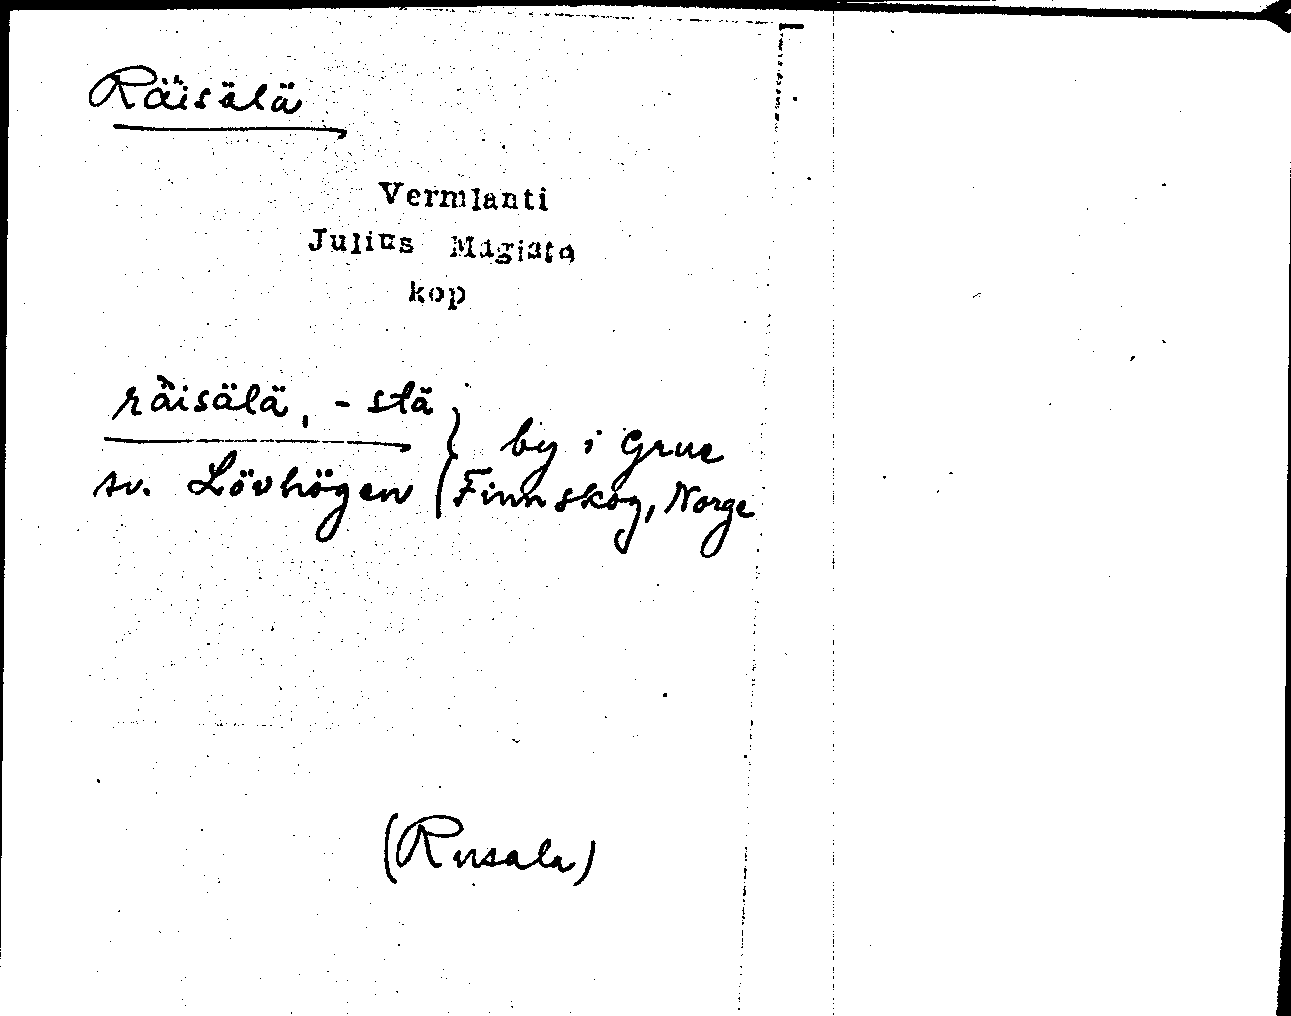 Räisälä
Vermlanti
Julius Mägiste
kop
räisälä, -stä } by i Grue
sv. Lövhögen ( Finnskog, Norge
(Rusala)